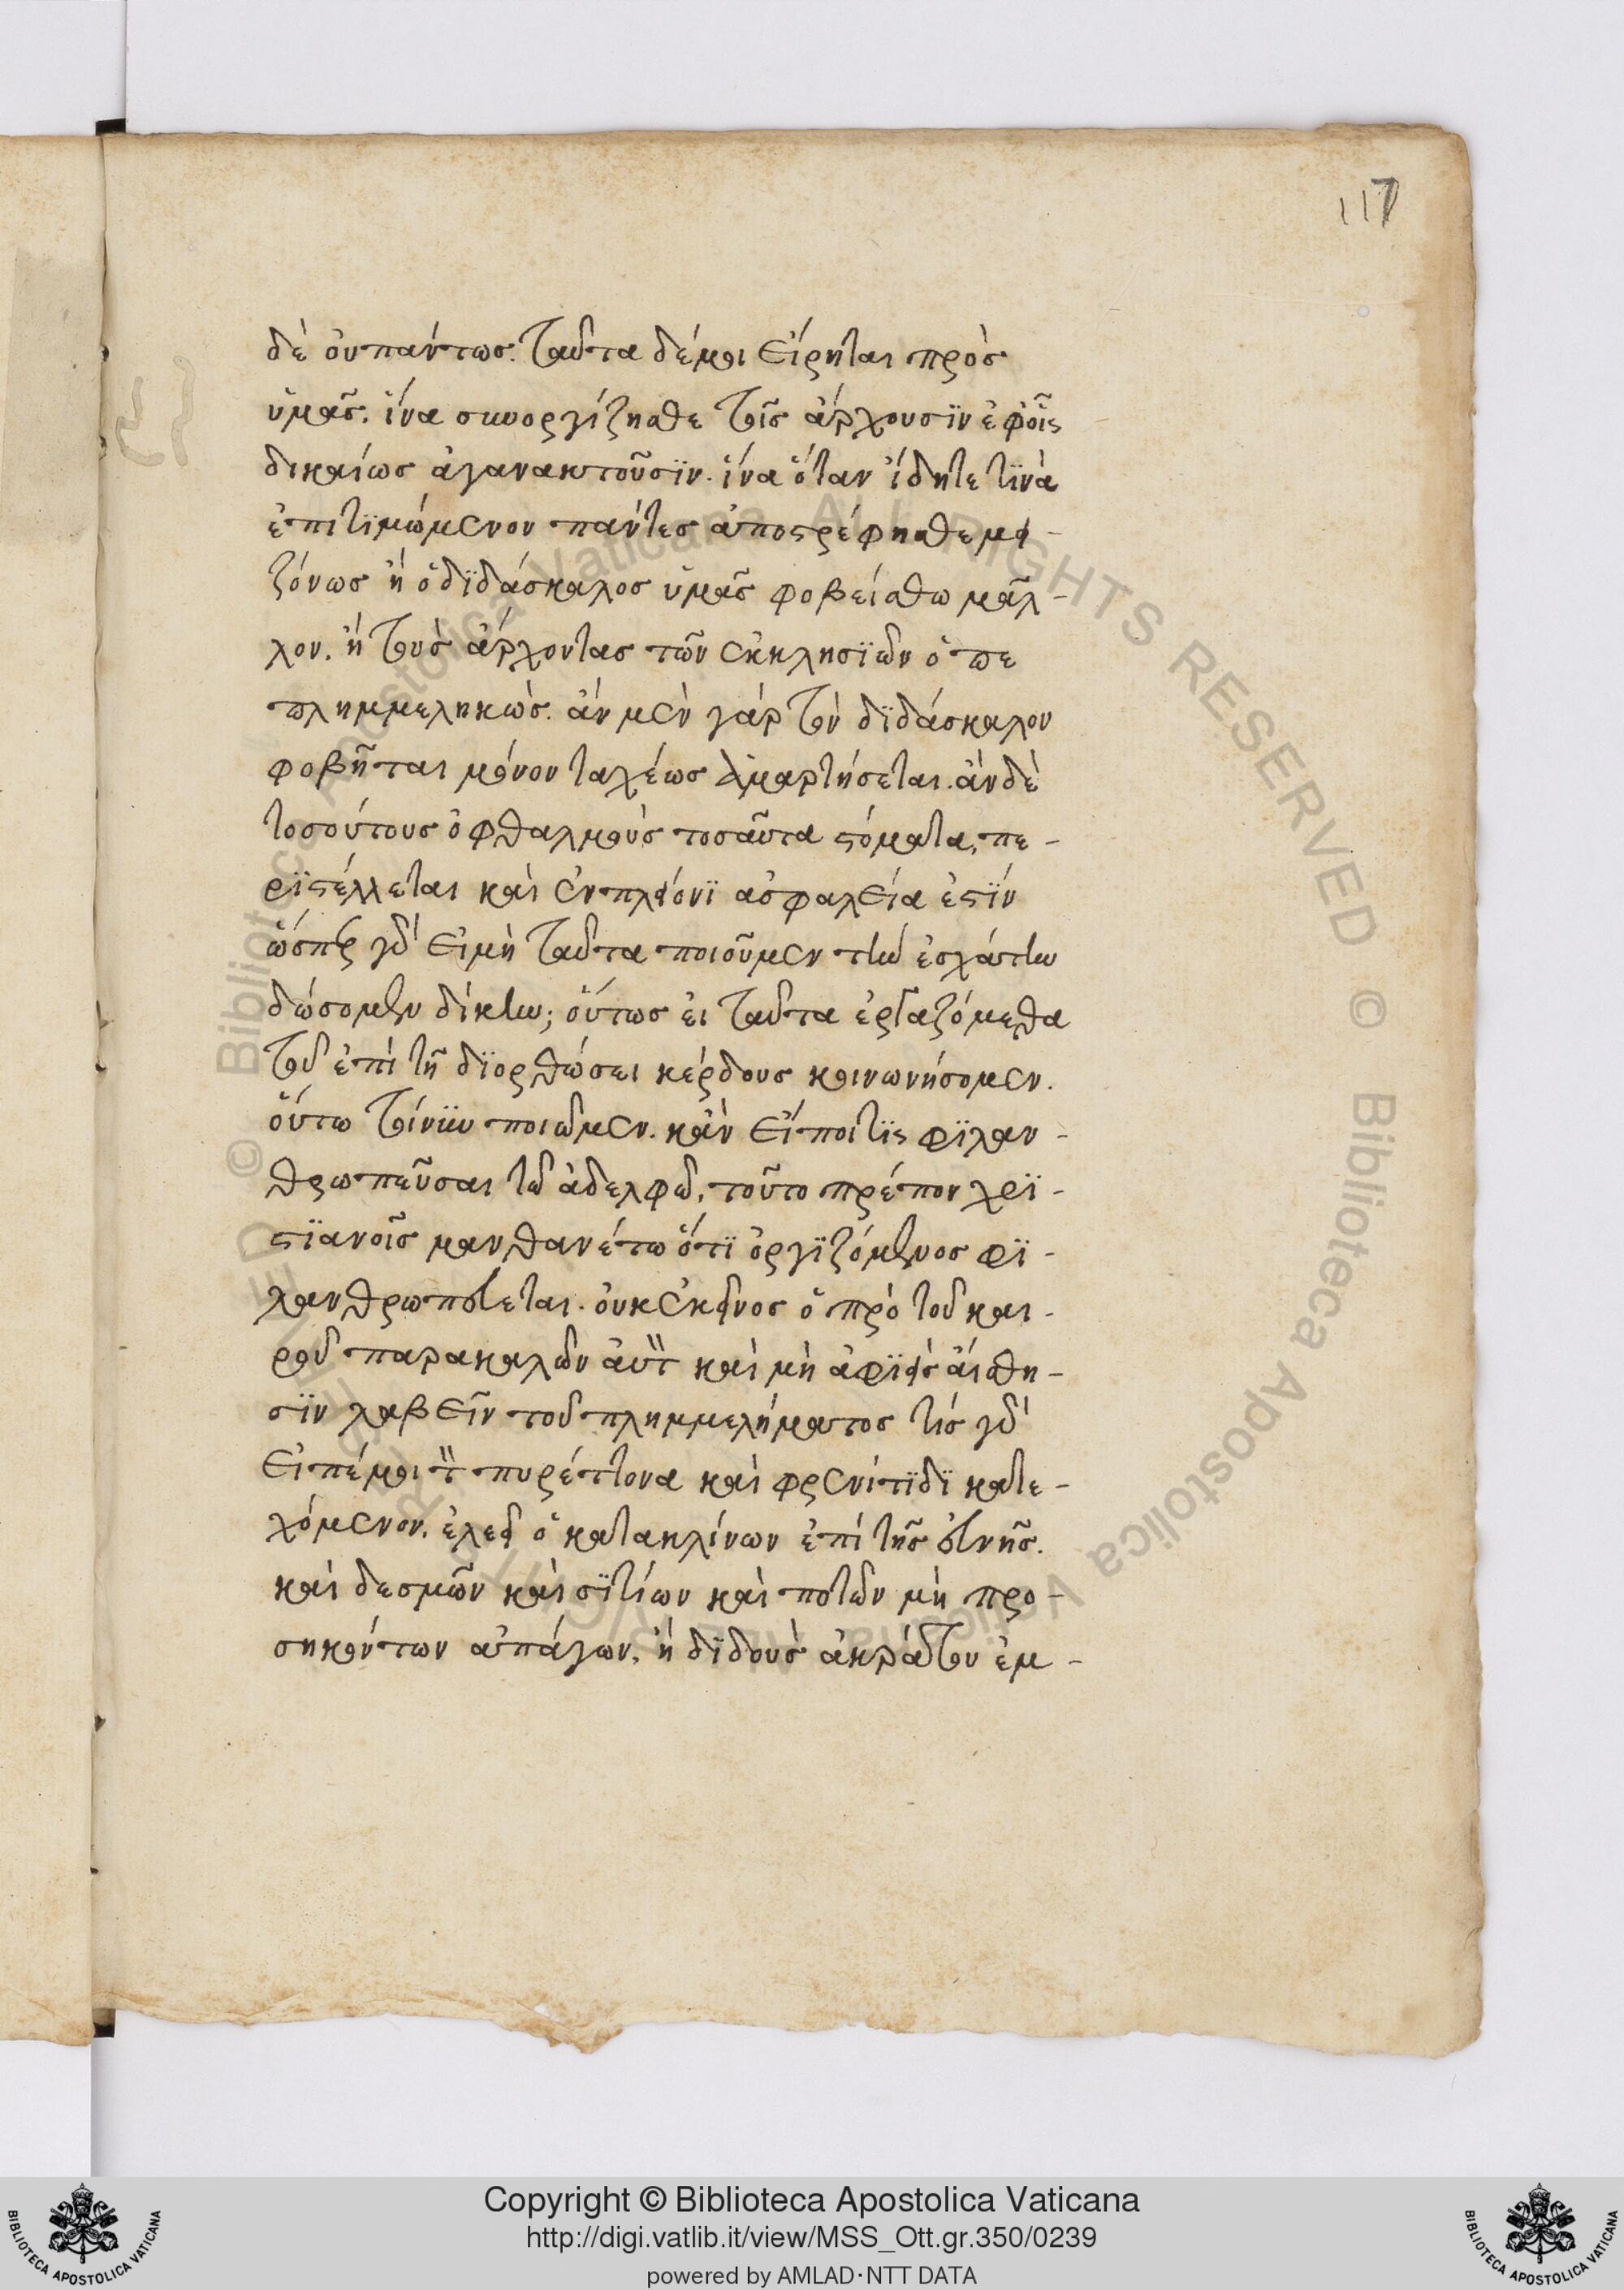 117
δὲ οὐ πάντως. ταῦτα δέ μοι εἴρηται πρὸς
ὑμᾶς. ἵνα συνοργίζησθε τοῖς ἄρχουσϊν ἐφ' οἷς
δικαίως ἀγανακτοῦσϊν. ἵνα ὅταν ἴδητε τϊνὰ
ἐπιτϊμώμενον πάντες ἀποστρέφησθε μει-
ζόνως ἢ ὁ δϊδάσκαλος ὑμᾶς φοβείσθω μᾶλ-
λον. ἢ τοὺς ἄρχοντας τῶν ἐκκλησϊῶν ὁ πε
πλημμεληκώς. ἂν μὲν γὰρ τὸν δϊδάσκαλον
φοβῆται μόνον ταχέως ἁμαρτήσεται. ἂν δὲ
τοσούτους ὀφθαλμοὺς τοσαῦτα στόματα, πε-
ρϊστέλλεται καὶ ἐν πλείονϊ ἀσφαλεία ἐστϊν
ὥσπερ γὰρ εἰ μὴ ταῦτα ποιοῦμεν τὴν ἐσχάτην
δώσομεν δίκην; οὕτως εἰ ταῦτα ἐργαζόμεθα
τοῦ ἐπὶ τῆ δϊορθώσει κέρδους κοινωνήσομεν.
οὕτω τοίνυν ποιῶμεν. κἂν εἴποι τϊς φϊλαν-
θρωπεῦσαι τῶ ἀδελφῶ, τοῦτο πρέπον χρϊ-
στϊανοῖς μανθανέτω ὅτϊ ὀργϊζόμενος φϊ-
λανθρωπεύεται. οὐκ ἐκεῖνος ὁ πρὸ τοῦ και-
ροῦ παρακαλῶν αὐτὸν καὶ μὴ ἀφϊεὶς αἴσθη-
σϊν λαβεῖν τοῦ πλημμελήματος τίς γὰρ
εἰπέ μοι τὸν πυρέττοντα καὶ φρενίτϊδϊ κατε-
χόμενον. ἐλεεῖ ὁ κατακλίνων ἐπὶ τῆς εὐνῆς.
καὶ δεσμῶν καὶ σϊτίων καὶ ποτῶν μὴ προ-
σηκόντων ἀπάγων, ἢ δϊδοὺς ἀκράτου ἐμ-
© Biblioteca Apostolica Vaticana ALL RIGHTS RESERVED
Copyright © Biblioteca Apostolica Vaticana
http://digi.vatlib.it/view/MSS_Ott.gr.350/0239
powered by AMLAD·NTT DATA
BIBLIOTECA APOSTOLICA VATICANA
BIBLIOTECA APOSTOLICA VATICANA